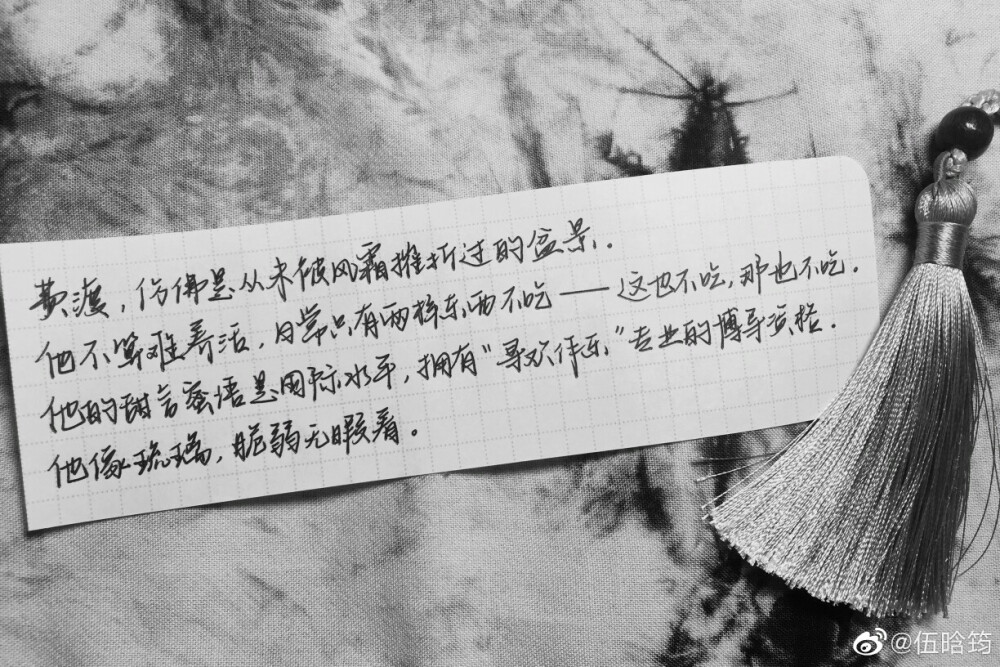 费渡，仿佛是从未被风霜摧折过的盆景．
他不算难养活，日常只有两样东西不吃——这也不吃，那也不吃．
他的甜言蜜语是国际水平，拥有“寻欢作乐”专业的博导资格．
他像琉璃，脆弱无暇着。
@伍晗筠